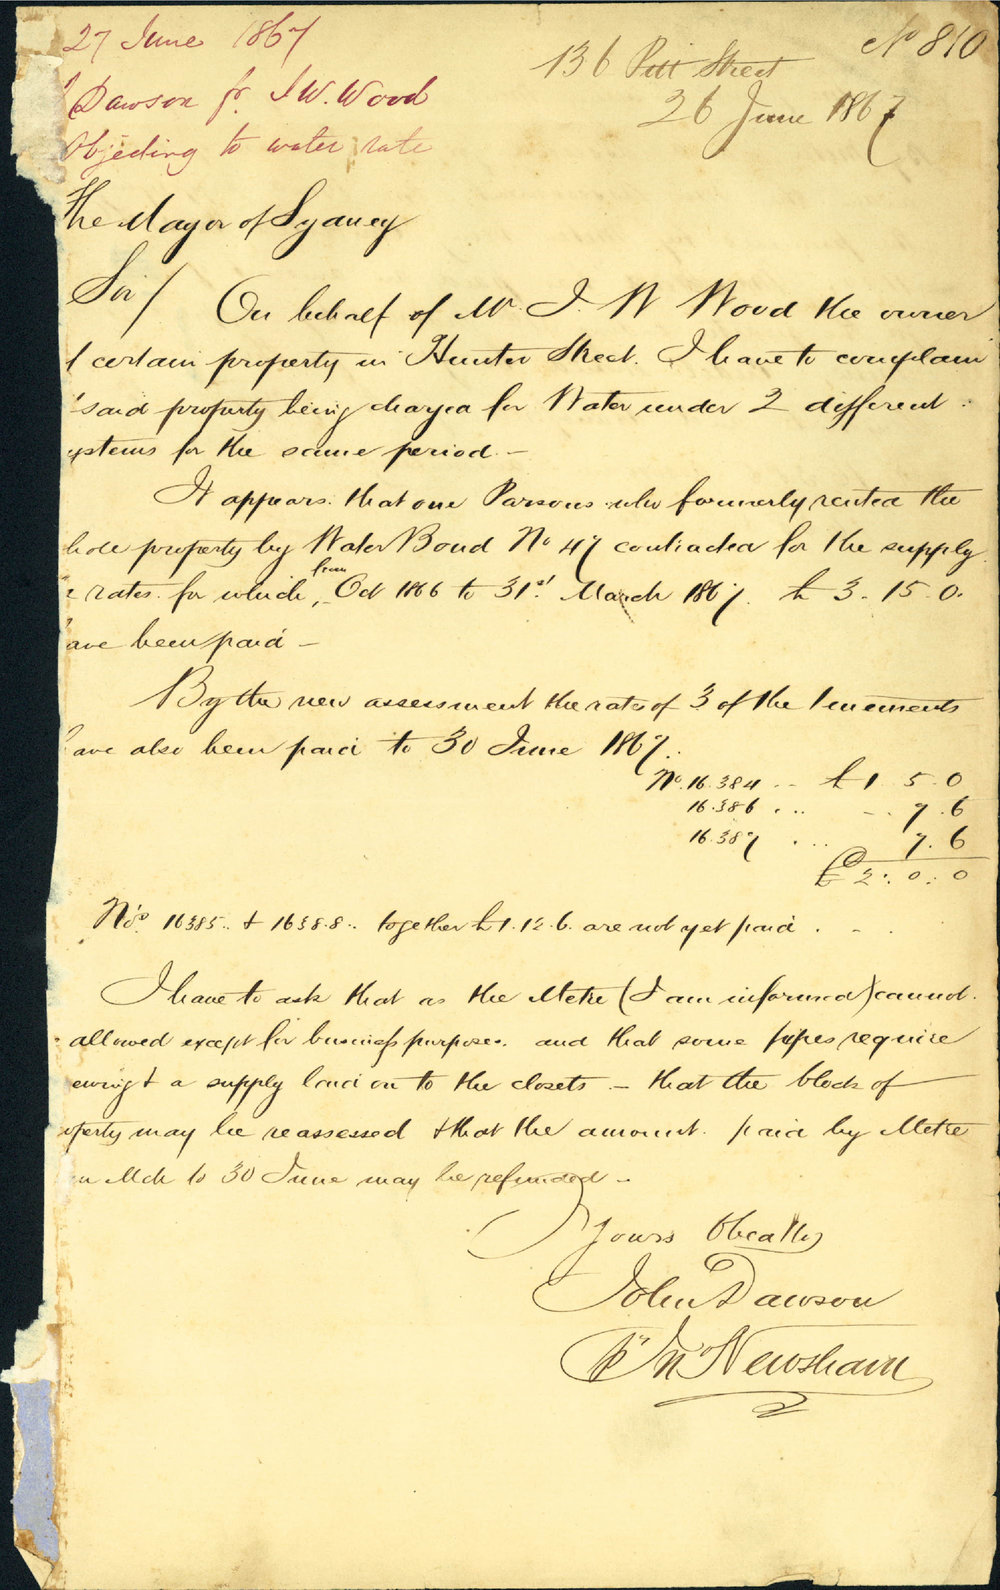 27 June 1867
Dawson fr J W. Wood
Objecting to water rate
No 810
136 Pitt Street
26 June 1867
The Mayor of Sydney
Sir/ On behalf of Mr. J. W Wood the owner
f certain property in Hunter Street. I have to complain
said property being charged for Water under 2 different
ystems for the same period. –
It appears that one Parsons who formerly rented the
hole property by Water Bond No 47 contracted for the supply
rates for which, from Oct 1866 to 31st March 1867. £3. 15. 0.
ave been paid –
By the new assessment the rates of 3 of the tenements
ave also been paid to 30 June 1867.
No. 16.384 .. £1 5 0
16.386 ... - . 7. 6
16.387 . ... 7. 6
£2. 0. 0
Nos. 16385.. & 16388.. together £1. 12. 6. are not yet paid . - .
I have to ask that as the Metre (I am informed) cannot
allowed except for business purposes. and that some pipes require
ewing & a supply laid on to the closets – that the block of
operty may be reassessed & that the amount. paid by Metre
Mch to 30 June may be refunded –
Yours Obeatly
John Dawson
Pr Jn Newsham